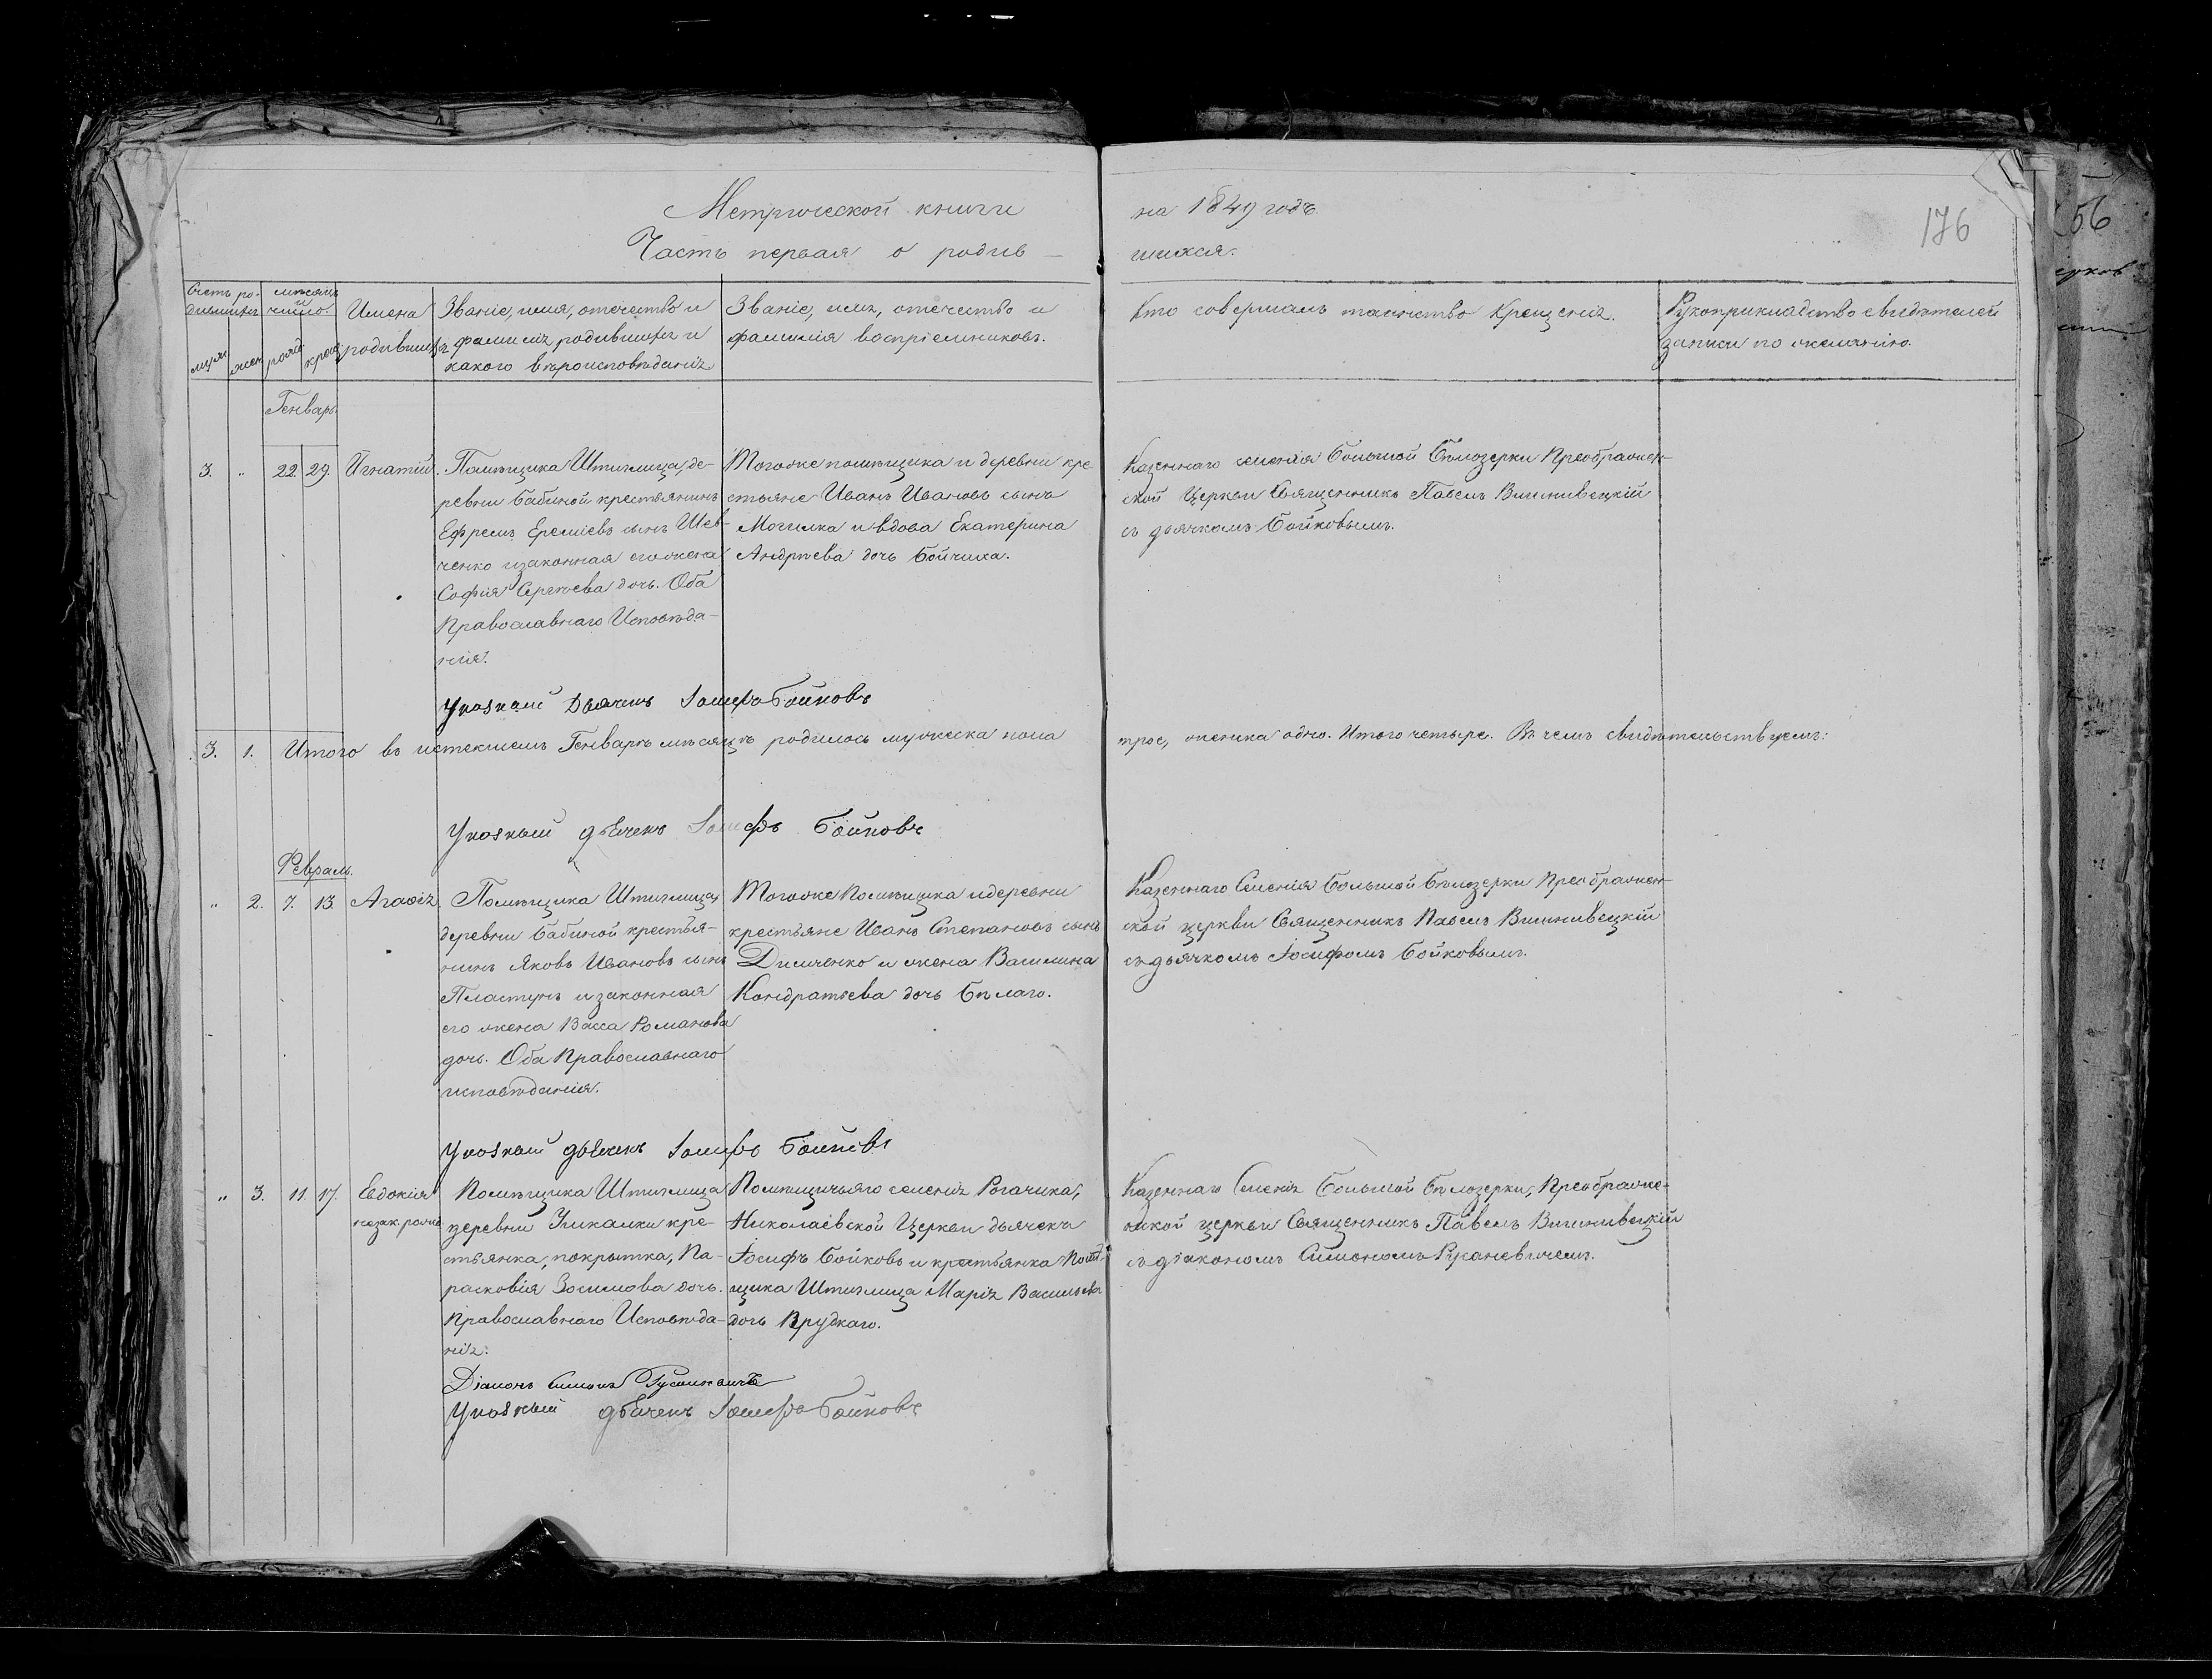 Метрической книги на 1849 годъ.
176
56
Часть первая о родив- шихся.
Счетъ родившихся
мѣсяцъ и число.
муж. жен. рожд. крещ.
Имена родившихся
Званіе, имя, отечество и
фамилія родившихъ и
какого вѣроисповѣданія
Званіе, имя, отечество и
фамилія воспріемниковъ.
Кто совершалъ таинство Крещенія.
Рукоприкладство свидѣтелей
записи по желанію.
Генварь.
3. " 22. 29. Игнатій.
Помѣщика Штиглица, де-
ревни Бабиной крестьянинъ
Ефремъ Ереміевъ сынъ Шев-
ченко и законная его жена
Софія Сергѣева дочь. Оба
Православнаго Исповѣда-
нія.
Тогоже помѣщика и деревни кре-
стьяне Иванъ Ивановъ сынъ
Могилка и вдова Екатерина
Андрѣева дочь Бойчиха.
Казеннаго селенія Большой Бѣлозерки Преображен-
ской Церкви Священникъ Павелъ Вишнивецкій
съ дьячкомъ Бойковымъ.
Указный Дьячекъ Іосифъ Бойковъ
3. 1. Итого въ истекшемъ Генварѣ мѣсяцѣ родилось мужеска пола трое, женска одно. Итого четыре. Въ чемъ свидѣтельствуемъ:
Указный дьячекъ Іосифъ Бойковъ
Февраль.
" 2. 7. 13. Агафія.
Помѣщика Штиглица,
деревни Бабиной крестья-
нинъ Яковъ Ивановъ сынъ
Пластунъ и законная
его жена Васса Романова
дочь. Оба Православнаго
исповѣданія.
Тогоже Помѣщика и деревни
крестьяне Иванъ Степановъ сынъ
Димченко и жена Василина
Кондратьева дочь Бѣлаго.
Казеннаго Селенія Большой Бѣлозерки Преображен-
ской церкви Священникъ Павелъ Вишнивецкій
съ дьячкомъ Іосифомъ Бойковымъ.
Указный дьячекъ Іосифъ Бойковъ
" 3. 11. 17. Евдокія
незак. рожд.
Помѣщика Штиглица
деревни Умкалки кре-
стьянка, покрытка, Па-
расковія Зосимова дочь.
Православнаго Исповѣда-
нія.
Помѣщичьяго селенія Рогачика,
Николаевской Церкви дьячекъ
Іосифъ Бойковъ и крестьянка Помѣ-
щика Штиглица Марія Васильева
дочь Прудкаго.
Казеннаго Селенія Большой Бѣлозерки, Преображе-
нской церкви Священникъ Павелъ Вишнивецкій
съ діакономъ Симономъ Русаневичемъ.
Діаконъ Симонъ Русаневичъ
Указный дьячекъ Іосифъ Бойковъ